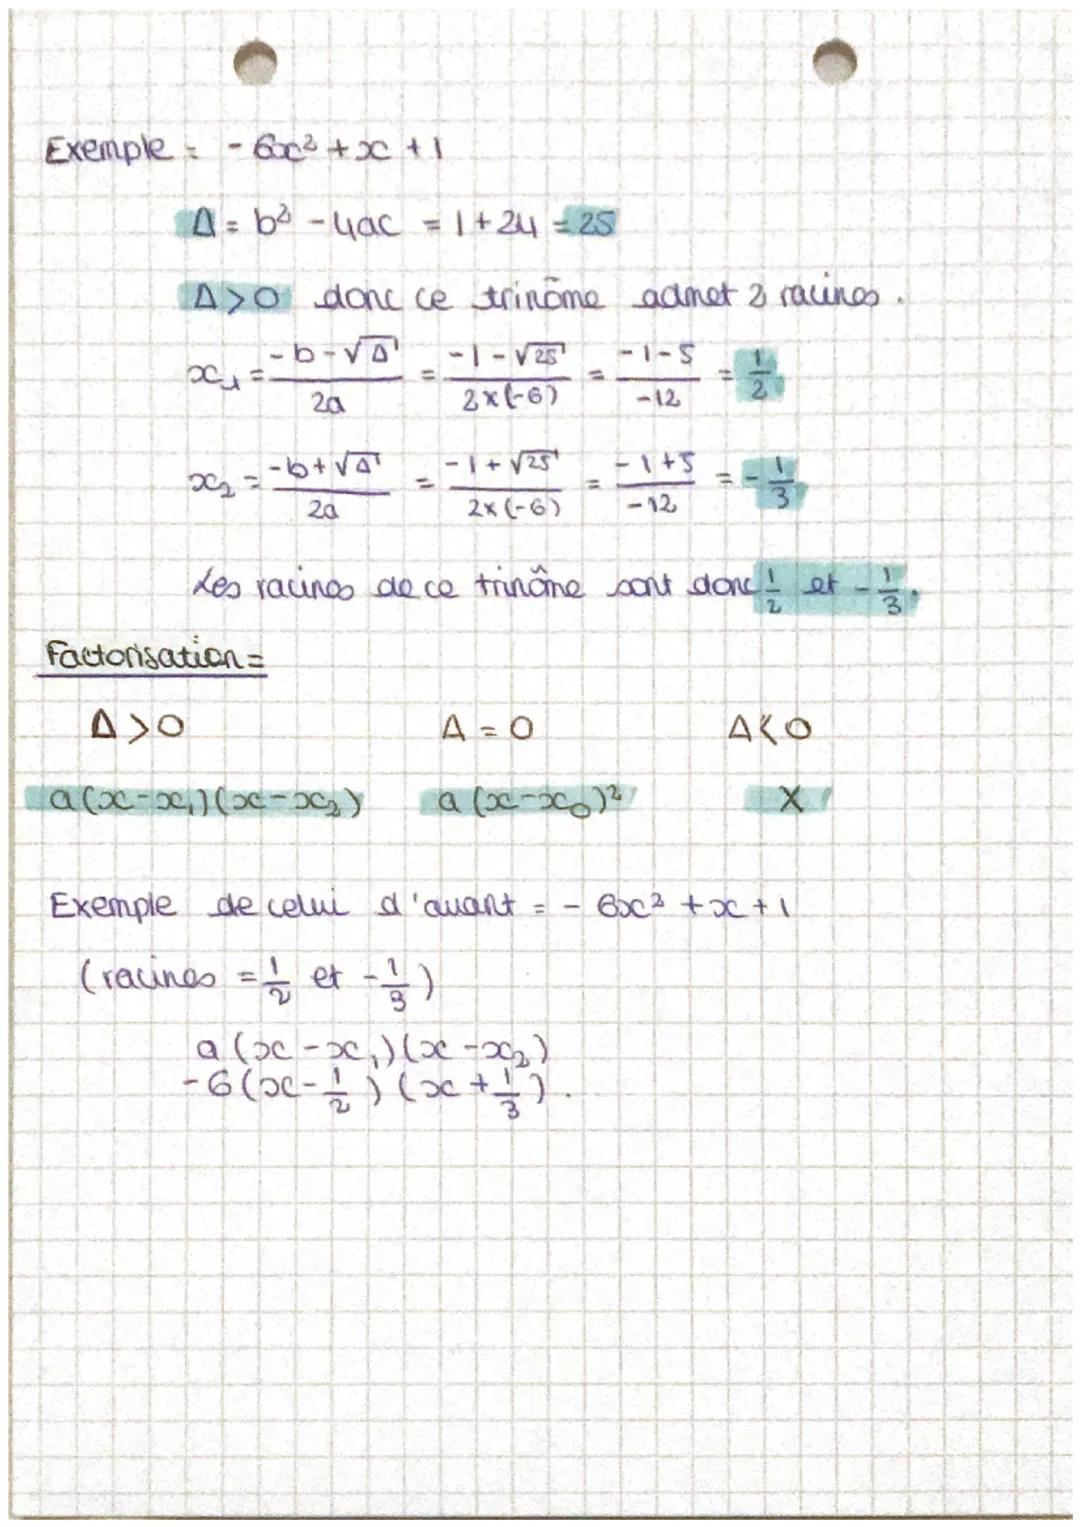 Exemple = - 6x² + x + 1
Δ = b² - 4ac = 1 + 24 = 25
Δ > 0 donc ce trinôme admet 2 racines.
x₁ = (-b - √Δ)/(2a) = (-1 - √25)/(2×(-6)) = (-1 - 5)/(-12) = 1/2
x₂ = (-b + √Δ)/(2a) = (-1 + √25)/(2×(-6)) = (-1 + 5)/(-12) = - 1/3
Les racines de ce trinôme sont donc 1/2 et - 1/3.
Factorisation =
Δ > 0 Δ = 0 Δ < 0
a(x - x₁)(x - x₂) a(x - x₀)² X
Exemple de celui d'avant = - 6x² + x + 1
(racines = 1/2 et - 1/3)
a(x - x₁)(x - x₂)
-6(x - 1/2)(x + 1/3).